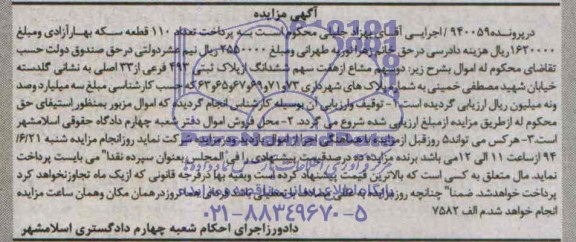 آگهی مزایده
درپرونده ۹۴۰۰۵۹ / اجرایی آقای بهزاد جلیلی محکوم است به پرداخت تعداد ۱۱۰ قطعه سکه بهارآزادی ومبلغ
۱۶۲۰۰۰۰ ریال هزینه دادرسی درحق خانم زهرا پورنقی طهرانی ومبلغ ۲۵۵۰۰۰۰ ریال نیم عشردولتی درحق صندوق دولت حسب
تقاضای محکوم له اموال بشرح زیر: دوسهم مشاع ازهفت سهم ششدانگ پلاک ثبتی ۴۹۳ فرعی از ۳۳ اصلی به نشانی گلدسته
خیابان شهید مصطفی خمینی به شماره پلاک های شهرداری ۷۳و۷۱و۶۹و۶۷و۶۵و۶۳ که حسب کارشناسی مبلغ سه میلیارد وصد
ونه میلیون ریال ارزیابی گردیده است. ۱- توقیف وارزیابی آن بوسیله کارشناس انجام گردیده که اموال مزبور بمنظور استیفای حق
محکوم له ازطریق مزایده ازمبلغ ارزیابی شده شروع می گردد. ۲- محل فروش اموال دفتر شعبه چهارم دادگاه حقوقی اسلامشهر
است. ۳- هرکس می تواند ۵ روزقبل ازمزایده با هماهنگی اجرا ازاموال بازدید ودرمزایده شرکت نماید روزانجام مزایده شنبه ۶/۲۱/
۹۴ ازساعت ۱۱ الی ۱۲ می باشد برنده مزایده ده درصدقیمت پیشنهادی را فی المجلس بعنوان سپرده نقدا" می بایست پرداخت
نماید. مال متعلق به کسی است که بالاترین قیمت پیشنهاد کرده است وبقیه بهارا درفرجه قانونی که ازیک ماه تجاوزنخواهد کرد
پرداخت خواهدشد. ضمنا" چنانچه روزمزایده به عللی مصادف باتعطیلی باشد فردای همانروزدرهمان مکان وهمان ساعت مزایده
انجام خواهد شد.م الف ۷۵۸۲
۰۲۱-۸۸۳۴۹۶۷۰-۵
دادورزاجرای احکام شعبه چهارم دادگستری اسلامشهر